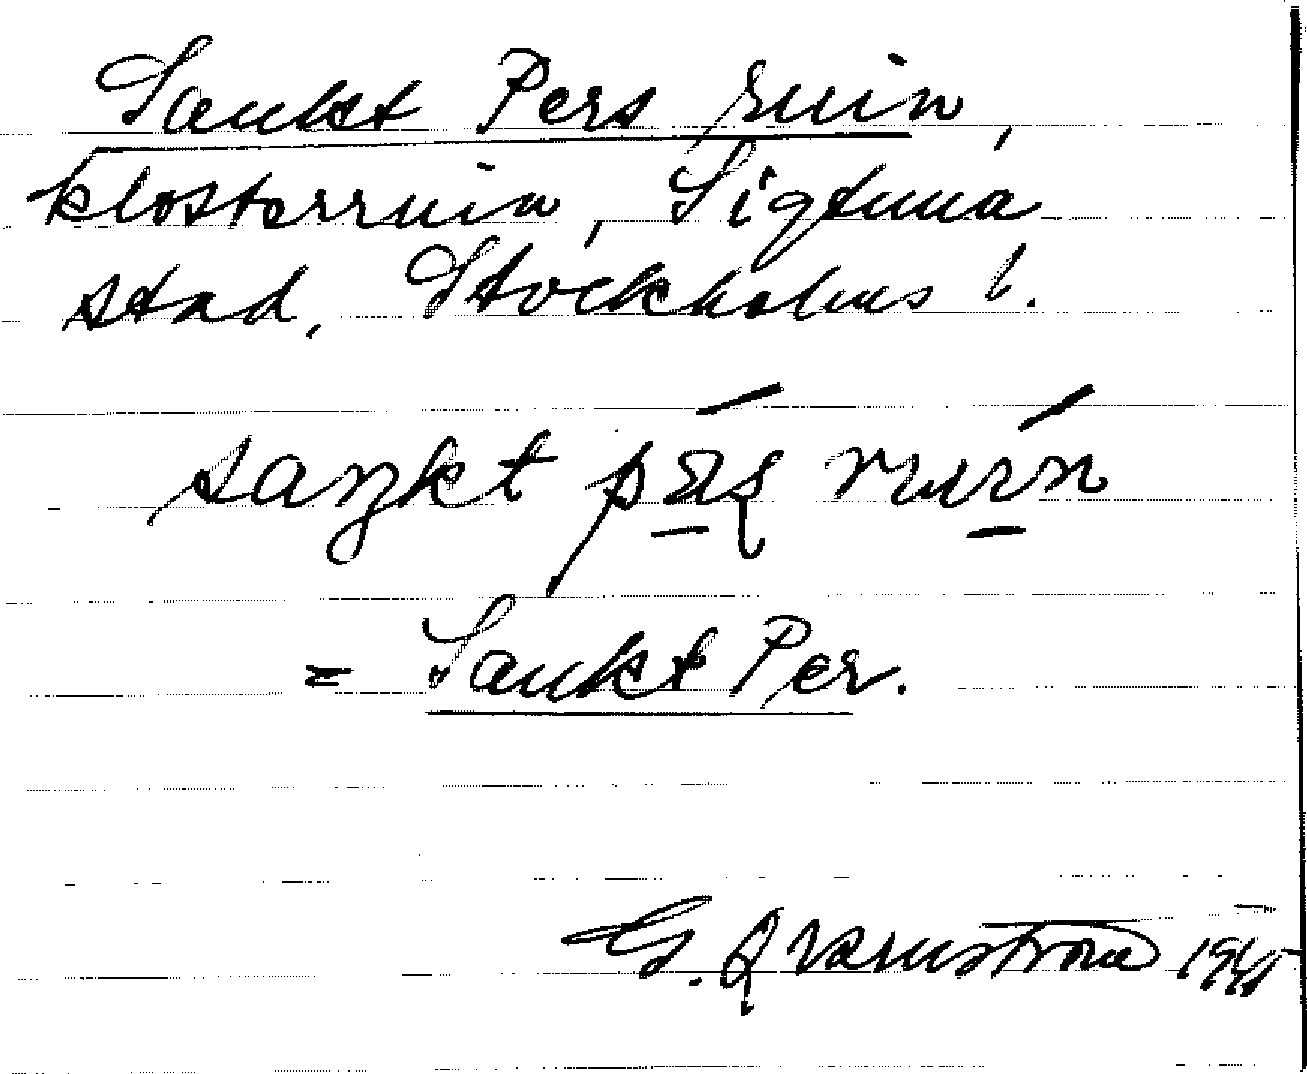 Sankt Pers ruin,
klosterruin, Sigtuna
stad, Stockholms l.
saŋkt pǽ̲ʂ ruı̲́n
= Sankt Per.
G. Qvarnström